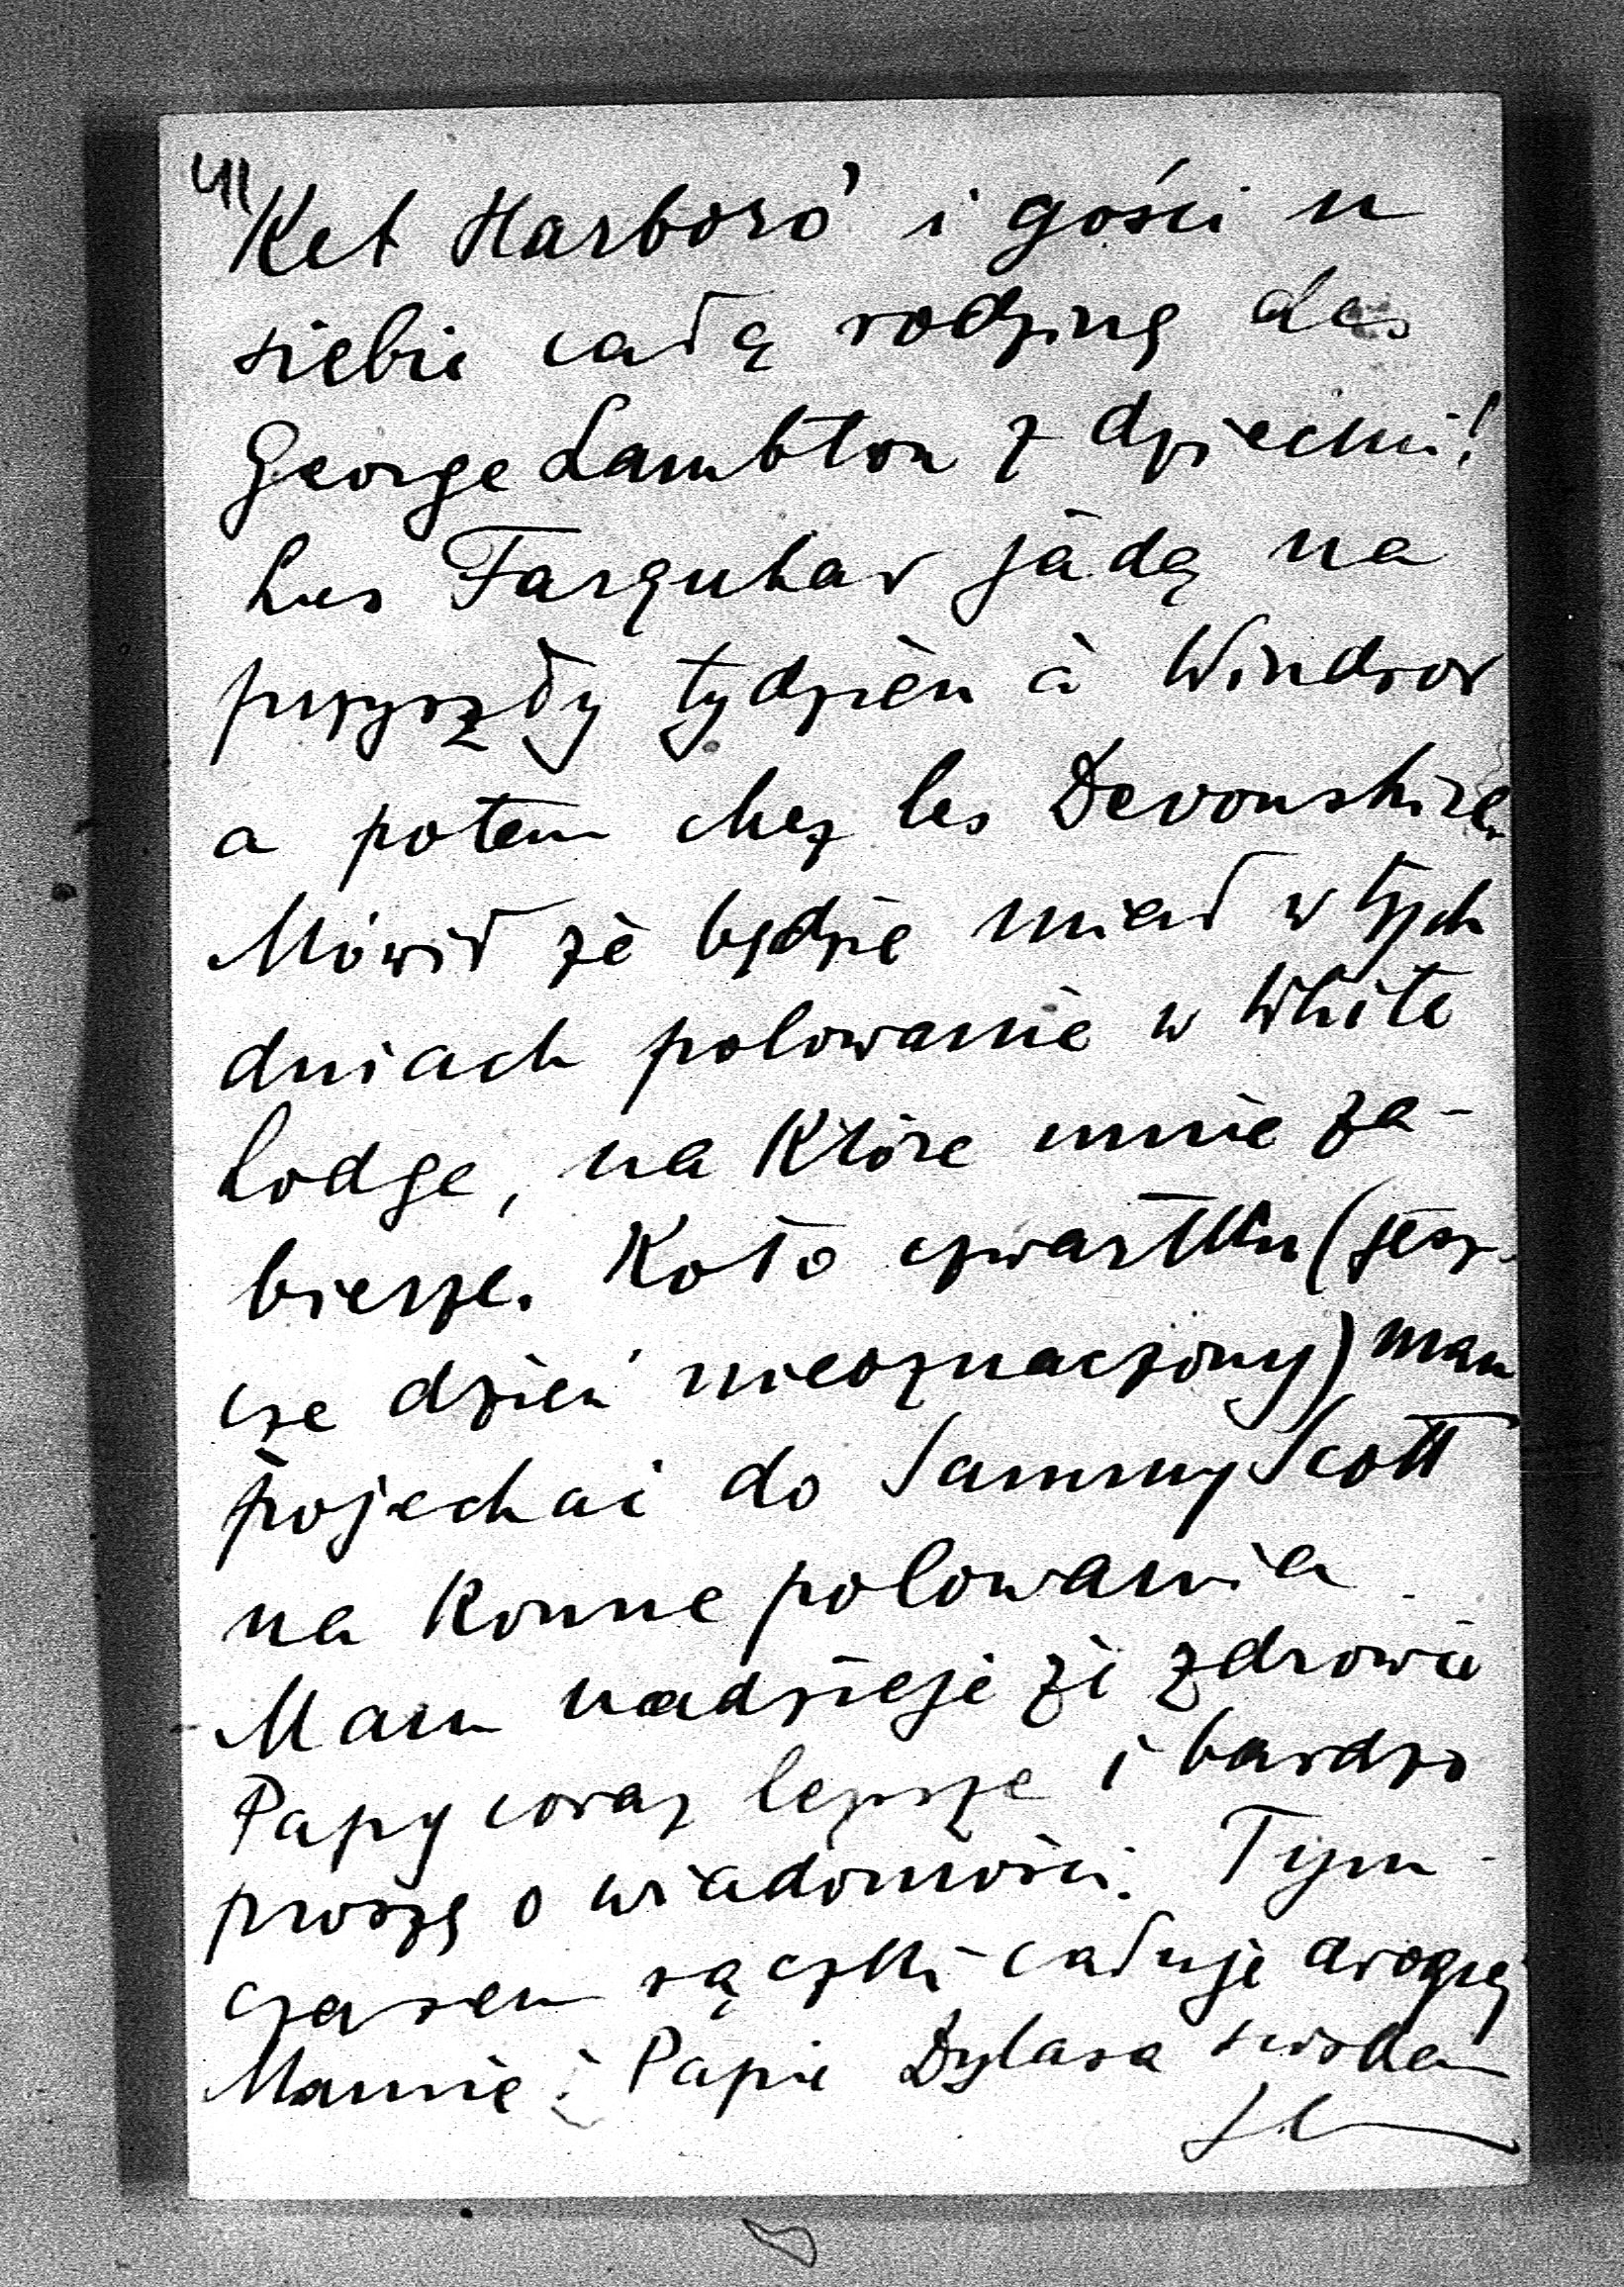 4/
Ket Harboro' i gości u
siebie całą rodzinę des
George Lambton z dziećmi!
Les Farquhar jadą na
przyszły tydzień à Windsor
a potem chez les Devonshire.
Mówił że będzie miał w tych
dniach polowanie w White
Lodge, na które mnie za-
bierze. Koło czwartku (jesz-
cze dzień nieoznaczony) mam
pojechać do Sammy Scott
na konne polowania.
Mam nadzieję że zdrowie
Papy coraz lepsze i bardzo
proszę o wiadomości. Tym-
czasem rączki całuję drogiej
Mamie i Papie Dylasa sciskam